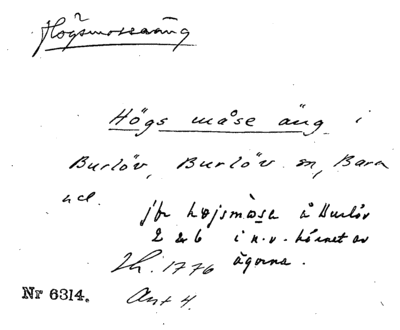 Högsmosseäng
Högs måse äng i
Burlöv, Burlöv sn, Bara
hd.
jfr højsmåsa å Burlöv
2 & 6 i n.v. hörnet av
ägorna.
Lh. 1776
Nr 6314. Akt 4.